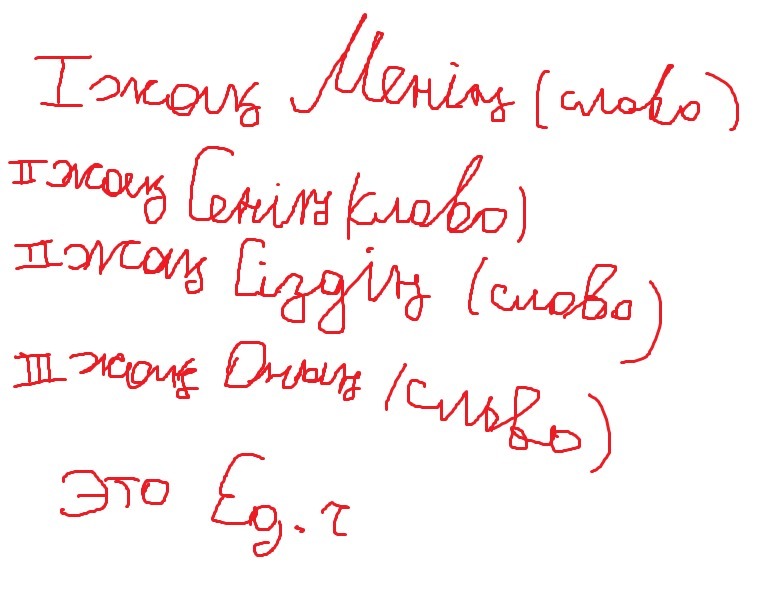 I жақ Менің (слово)
II жақ Сенің (слово)
II жақ Сіздің (слово)
III жақ Оның (слово)
Это Ед. ч